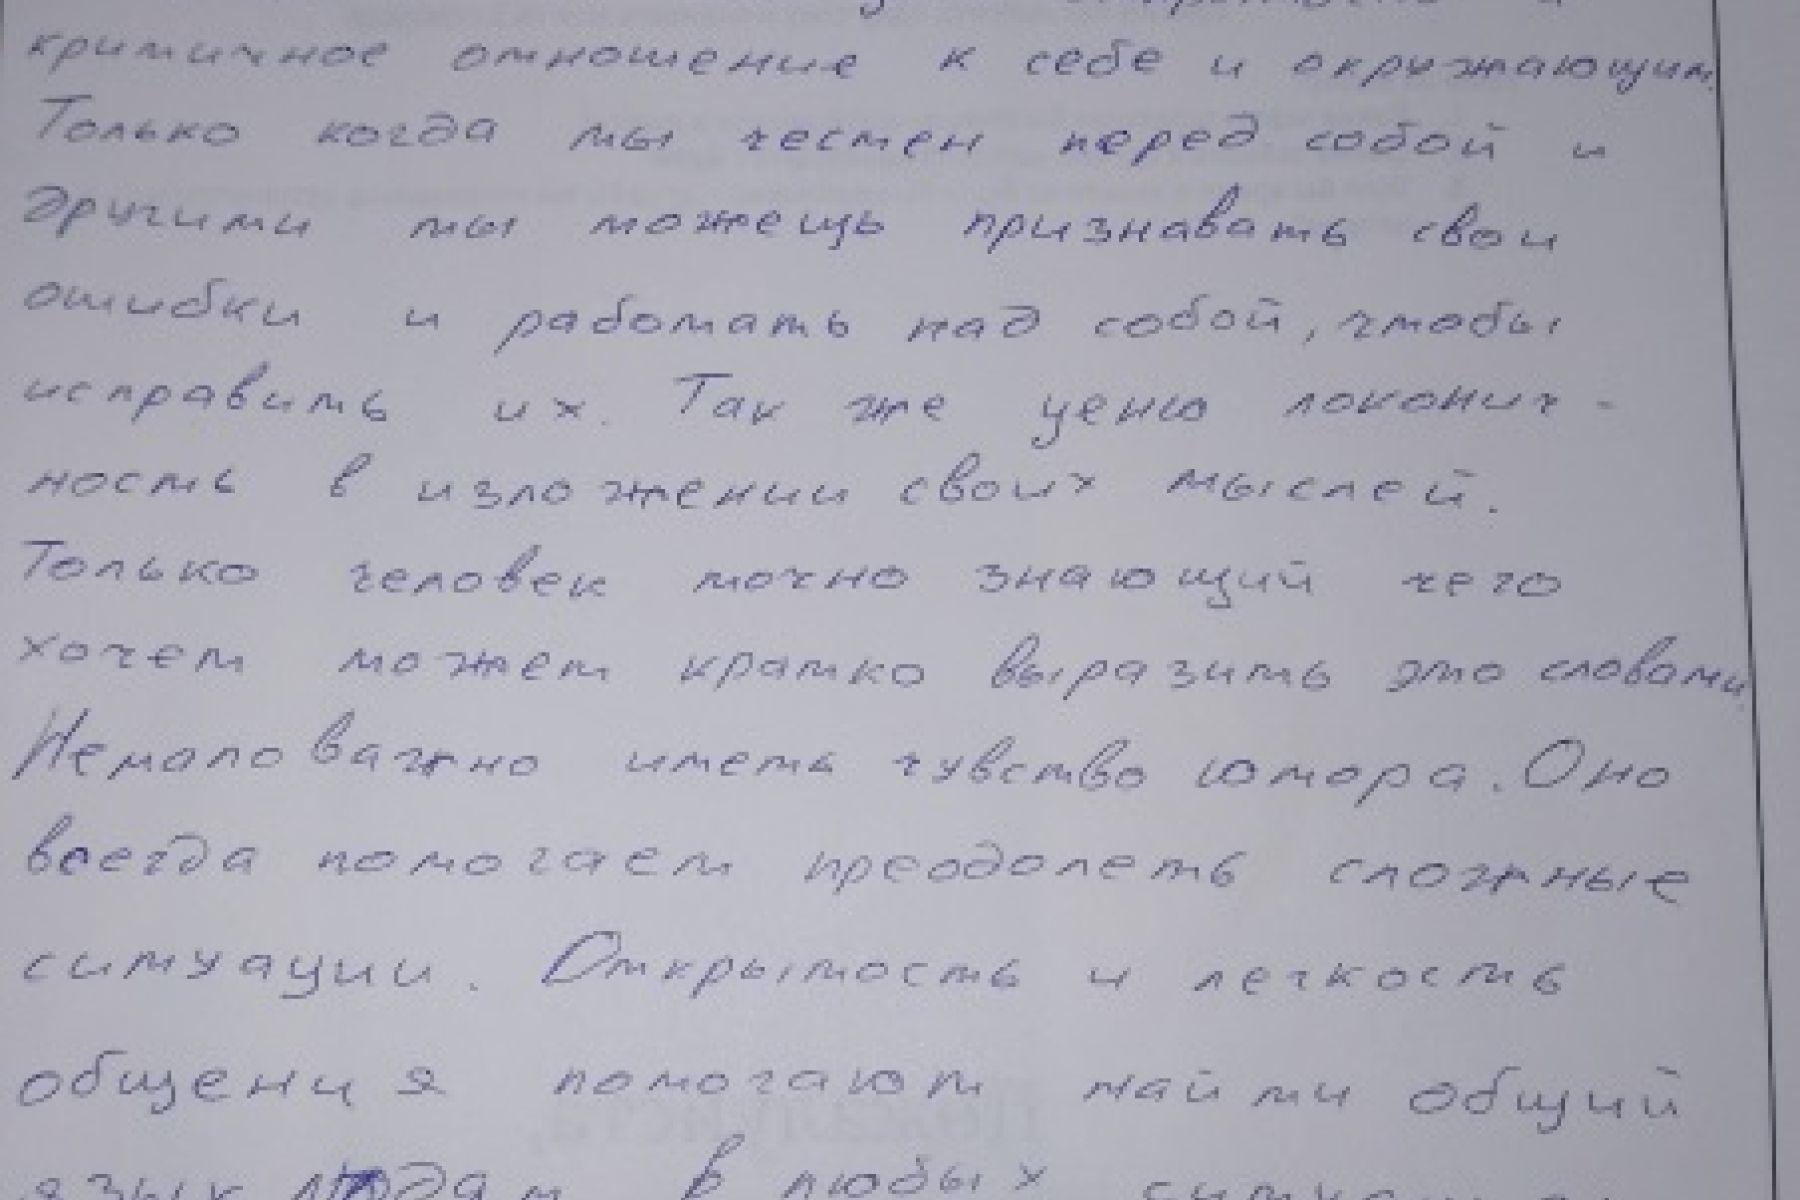 критичное отношение к себе и окружающим.
Только когда мы честен перед собой и
другими мы можещь признавать свои
ошибки и работать над собой, чтобы
исправить их. Так же ценю локонич-
ность в изложении своих мыслей.
Только человек точно знающий чего
хочет может кратко выразить это словами.
Немаловажно иметь чувство юмора. Оно
всегда помогает преодолеть сложные
ситуации. Открытость и легкость
общения помогают найти общий
язык людям в любых